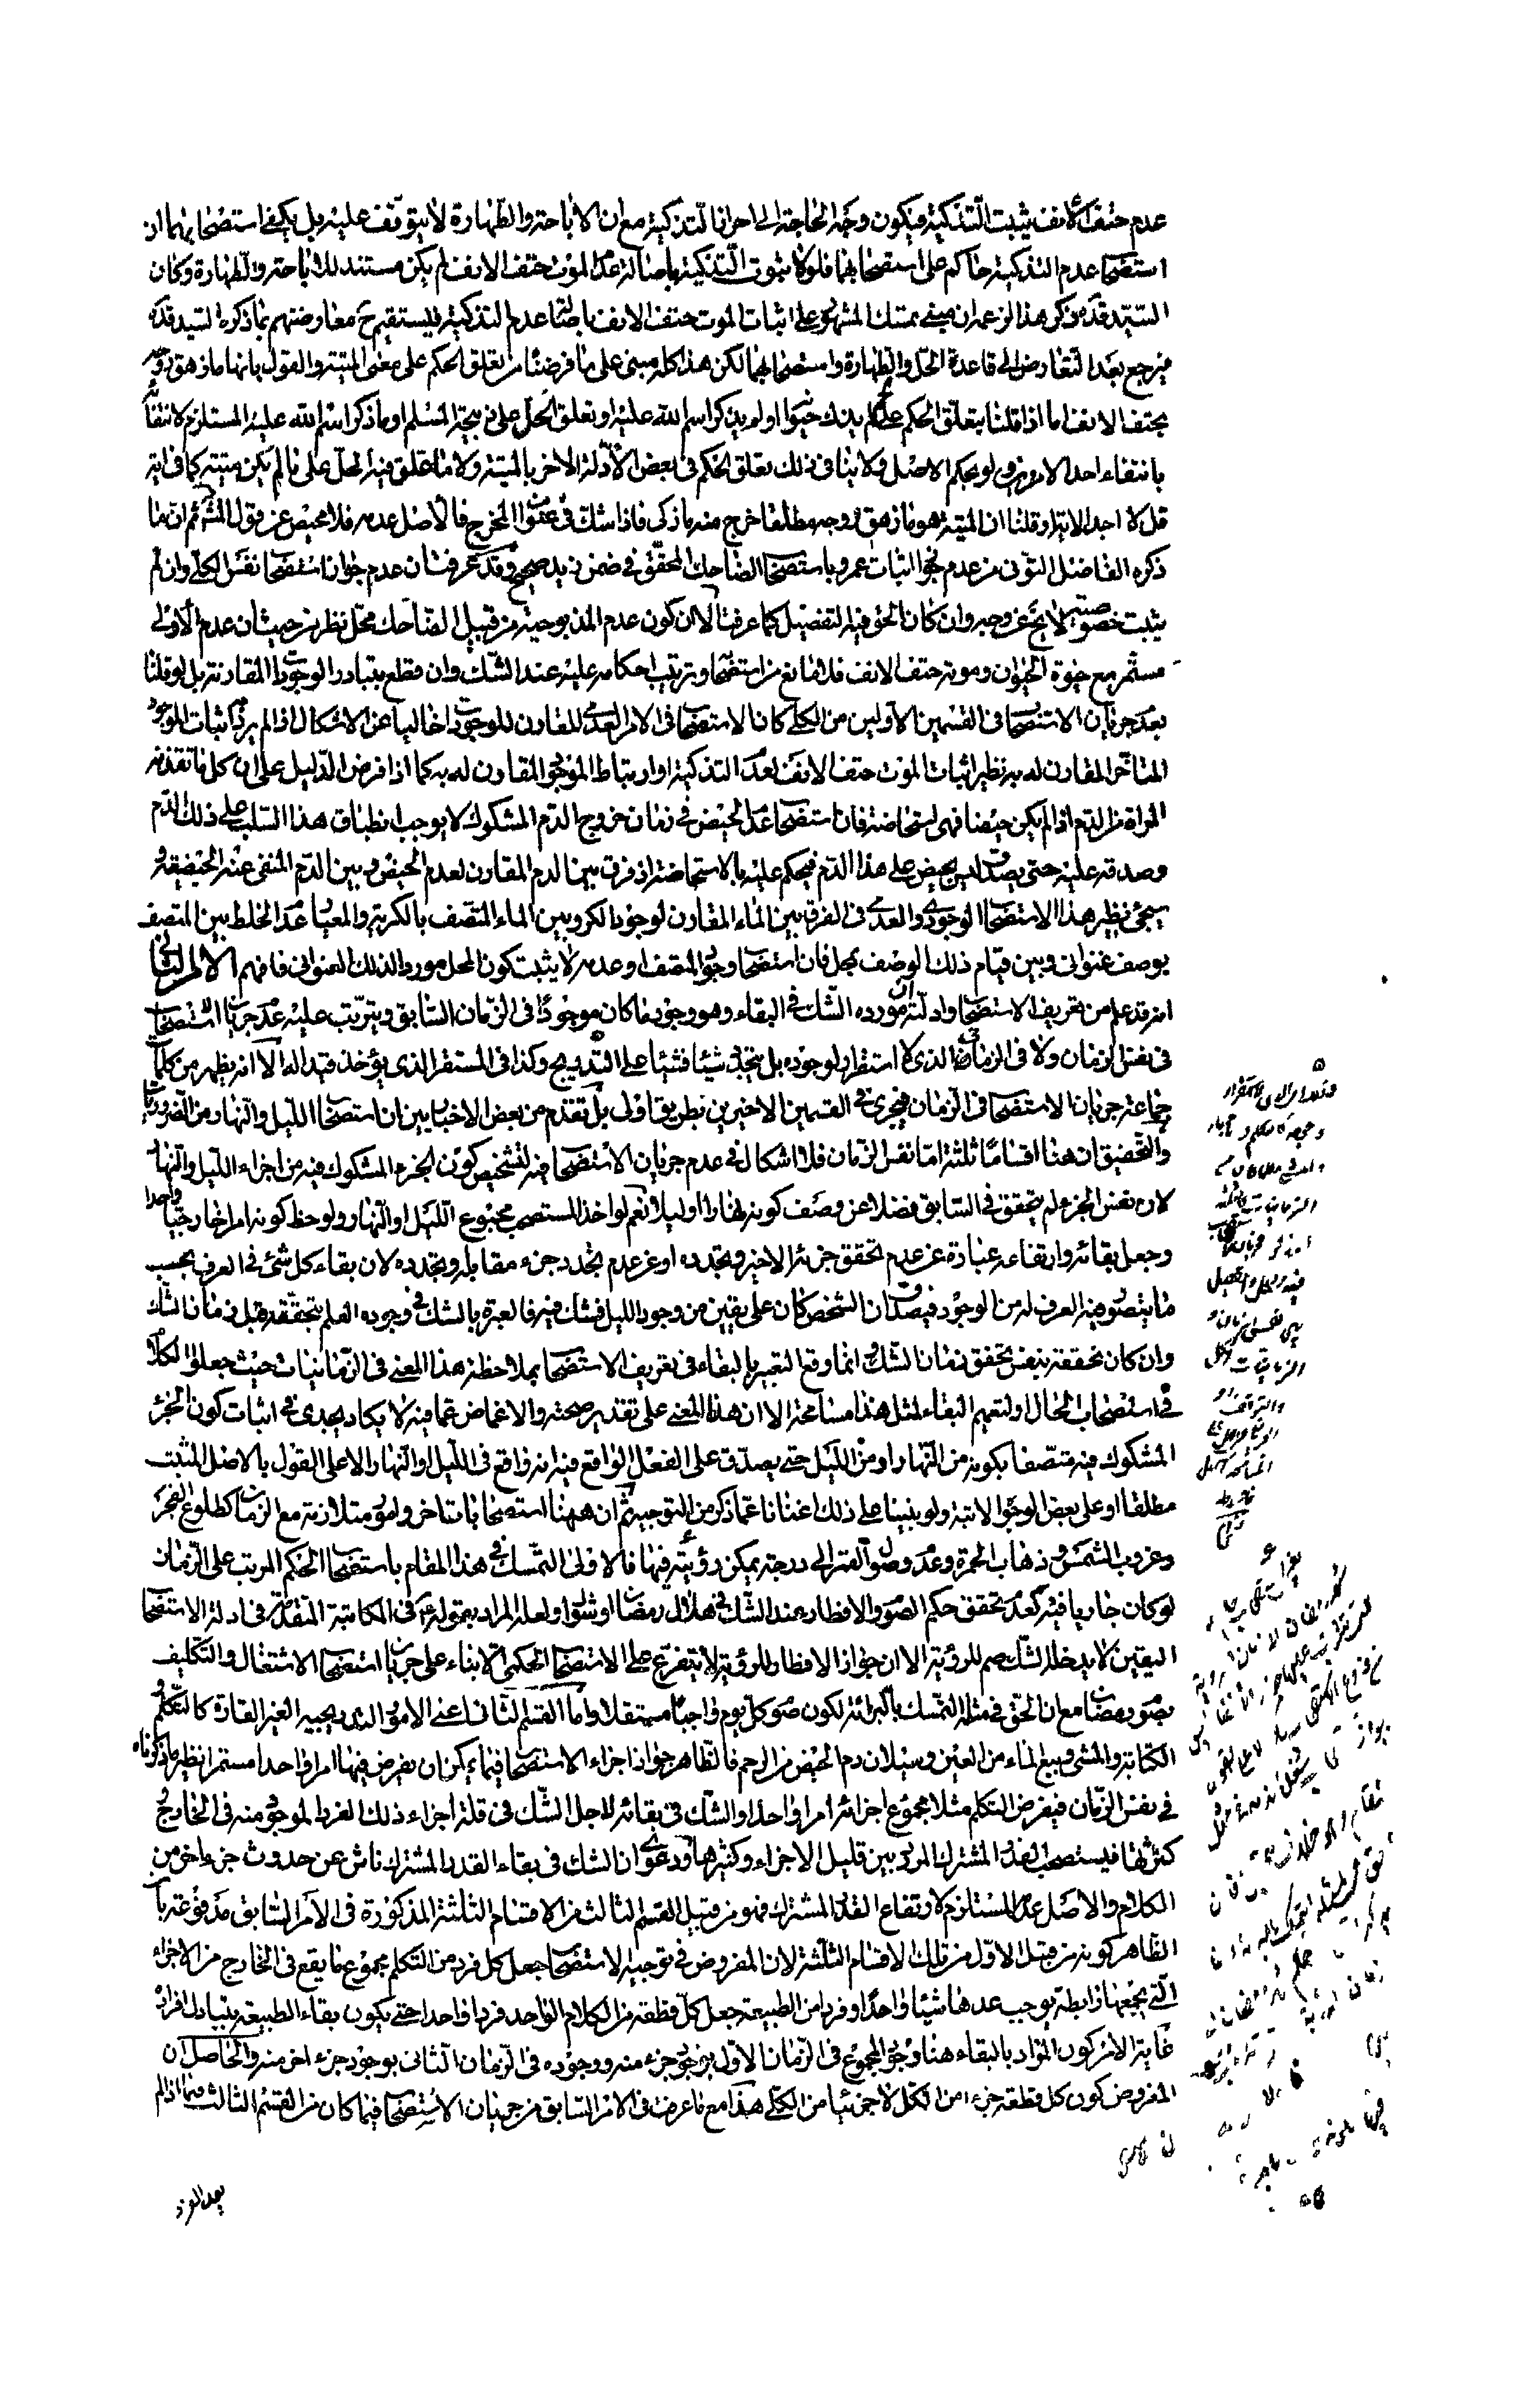 عدم حتف الانف يثبت التذكية فيكون وجه الحاجة الى احراز التذكية مع ان الاباحة والطهارة لا يتوقف عليه بل يكفى استصحابهما ان
استصحاب عدم التذكية حاكم على استصحابهما فلولا ثبوت التذكية باصالة عدم الموت حتف الانف لم يكن مستند للاباحة والطهارة وكان
السيد قده ذكر هذا لزعمه ان مبنى تمسك المشهور على اثبات الموت حتف الانف باصالة عدم التذكية فيستقيم ح معارضتهم بما ذكره السيد قده
فيرجع بعد التعارض الى قاعدة الحل والطهارة واستصحابهما لكن هذا كله مبنى على ما فرضنا من تعلق الحكم على معنى الميتة والقول بانها ما زهق روحه
بحتف الانف اما اذا قلنا بتعلق الحكم على لم يذك حيوانا او لم يذكر اسم الله عليه او تعلق الحل على ذبيحة المسلم او ما ذكر اسم الله عليه المستلزم لانتفائه
بانتفاء احد الامرين ولو بحكم الاصل ولا ينافى ذلك تعلق الحكم فى بعض الادلة الاخر بالميتة ولا ما علق فيه الحل على ما لم يكن ميتة كما فى اية
قل لا اجد الاية او قلنا ان الميتة هو ما زهق روحه مطلقا خرج منه ما ذكى فاذا شك فى عنوان المخرج فالاصل عدمه فلا محيص عن قول المشهور ثم ان ما
ذكره الفاضل التونى من عدم جواز اثبات عمرو باستصحاب الضاحك المحقق فى ضمن زيد صحيح وقد عرفت ان عدم جواز استصحاب نفس الكلى وان لم
يثبت خصوصية لا يخ عن وجه وان كان الحق فيه التفصيل كما عرفت الا ان كون عدم المذبوحية من قبيل الضاحك محل نظر من حيث ان عدم الاولى
مستمر مع حيوة الحيوان وموته حتف الانف فلا مانع من استصحابه وترتيب احكامه عليه عند الشك وان قطع بتبادل الوجودات المقارنة بل لو قلنا
بعدم جريان الاستصحاب فى القسمين الاولين من الكلى كان الاستصحاب فى الامر العدمى المقارن للوجودات خاليا عن الاشكال اذا لم يرد به اثبات الموجود
المتاخر المقارن له به نظير اثبات الموت حتف الانف بعدم التذكية او ارتباط الموجود المقارن له به كما اذا فرض الدليل على ان كل ما تقذفه
المراة من الدم اذا لم يكن حيضا فهى استحاضة فان استصحاب عدم الحيض فى زمان خروج الدم المشكوك لا يوجب انطباق هذا السلب على ذلك الدم
وصدقه عليه حتى يصدق ليس بحيض على هذا الدم فيحكم عليه بالاستحاضة اذ فرق بين الدم المقارن لعدم الحيض وبين الدم المنفى عنه الحيضية و
سيجئ نظير هذا الاستصحاب الوجودى والعدمى فى الفرق بين الماء المقارن لوجود الكر وبين الماء المتصف بالكرية والمعيار عدم الخلط بين المتصف
بوصف عنوانى وبين قيام ذلك الوصف بمحل فان استصحاب وجود المتصف او عدمه لا يثبت كون المحل موردا لذلك العنوان فافهم الامر الثانى
انه قد علم من تعريف الاستصحاب وادلته ان مورده الشك فى البقاء وهو وجود ما كان موجودا فى الزمان السابق ويترتب عليه عدم جريان الاستصحاب
فى نفس الزمان ولا فى الزمانى الذى لا استقرار لوجوده بل يتجدد شيئا فشيئا على التدريج وكذا فى المستقر الذى يؤخذ قيدا له الا انه يظهر من كلمات
جماعة جريان الاستصحاب فى الزمان فيجرى فى القسمين الاخيرين بطريق اولى بل تقدم من بعض الاخباريين ان استصحاب الليل والنهار من الضروريات
والتحقيق ان هنا اقساما ثلثة اما نفس الزمان فلا اشكال فى عدم جريان الاستصحاب فيه لتشخيص كون الجزء المشكوك فيه من اجزاء الليل والنهار
لان نفس الجزء لم يتحقق فى السابق فضلا عن وصف كونه نهارا او ليلا نعم لو اخذ المستصحب مجموع الليل او النهار ولوحظ كونه امرا خارجيا واحدا
وجعل بقائه وارتفاعه عبارة عن عدم تحقق جزئه الاخير وتجدده او عن عدم تجدد جزء مقابله وتجدده لان بقاء كل شئ فى العرف بحسب
ما يتصوره فيه العرف له من الوجود فيصدق ان الشخص كان على يقين من وجود الليل فشك فيه فالعبرة بالشك فى وجوده العلم بتحققه قبل زمان الشك
وان كان تحققه بنفس تحقق زمان الشك وانما وقع التعبير بالبقاء فى تعريف الاستصحاب بملاحظة هذا المعنى فى الزمانيات حيث جعلوا الكلام
فى استصحاب الحال او لتعميم البقاء لمثل هذا مسامحة الا ان هذا المعنى على تقدير صحته والاغماض عما فيه لا يكاد يجدى فى اثبات كون الجزء
المشكوك فيه متصفا بكونه من النهار او من الليل حتى يصدق على الفعل الواقع فيه انه واقع فى الليل او النهار الا على القول بالاصل المثبت
مطلقا او على بعض الوجوه الاتية ولو بنينا على ذلك اغنانا عما ذكر من التوجيه ثم ان هيهنا استصحابات اخر وامور متلازمة مع الزمان كطلوع الفجر
وغروب الشمس وذهاب الحمرة وعدم وصول القمر الى درجة يمكن رؤيته فيها فالاولى التمسك فى هذا المقام باستصحاب الحكم المرتب على الزمان
لو كان جاريا فيه كعدم تحقق حكم الصوم والافطار عند الشك فى هلال رمضان او شوال ولعله المراد بقوله ع فى المكاتبة المتقدمة فى ادلة الاستصحاب
اليقين لا يدخله الشك صم للرؤية الا ان جواز الافطار للرؤية لا يتفرع على الاستصحاب الحكمى الا بناء على جريان استصحاب الاشتغال والتكليف
بصوم رمضان مع ان الحق فى مثله التمسك بالبرائة لكون صوم كل يوم واجبا مستقلا واما القسم الثانى اعنى الامور التدريجية الغير القارة كالتكلم و
الكتابة والمشى ونبع الماء من العين وسيلان دم الحيض من الرحم فالظاهر جواز اجراء الاستصحاب فيما يمكن ان يفرض فيها امرا واحدا مستمرا نظير ما ذكرناه
فى نفس الزمان فيفرض التكلم مثلا مجموع اجزائه امرا واحدا والشك فى بقائه لاجل الشك فى قلة اجزاء ذلك الفرد الموجود منه فى الخارج و
كثرتها فيستصحب القدر المشترك المردد بين قليل الاجزاء وكثيرها ودعوى ان الشك فى بقاء القدر المشترك ناش عن حدوث جزء اخر من
الكلام والاصل عدمه المستلزم لارتفاع القدر المشترك فهو من قبيل القسم الثالث من الاقسام الثلثة المذكورة فى الامر السابق مدفوعة بان
الظاهر كونه من قبيل الاول من تلك الاقسام الثلثة لان المفروض فى توجيه الاستصحاب جعل كل فرد من التكلم مجموع ما يقع فى الخارج من الاجزاء
التى يجمعها رابطة يوجب عدها شيئا واحدا وفردا من الطبيعة جعل كل قطعة من الكلام الواحد فردا واحدا حتى يكون بقاء الطبيعة بتبادل افراده
غاية الامر كون المراد بالبقاء هنا وجود المجموع فى الزمان الاول بوجود جزء منه ووجوده فى الزمان الثانى بوجود جزء اخر منه والحاصل ان
المفروض كون كل قطعة جزء من الكل لا جزئيا من الكلى هذا مع ما عرفت فى الامر السابق من جريان الاستصحاب فيما كان من القسم الثالث فيما اذا لم
يعد الفرد